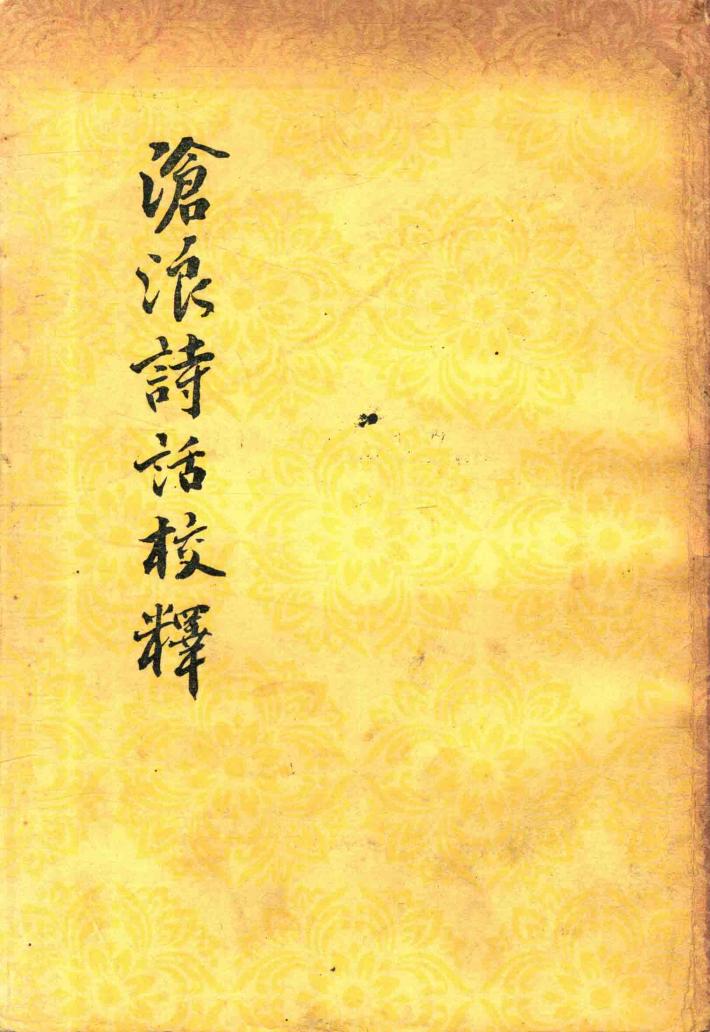 滄浪詩話校釋